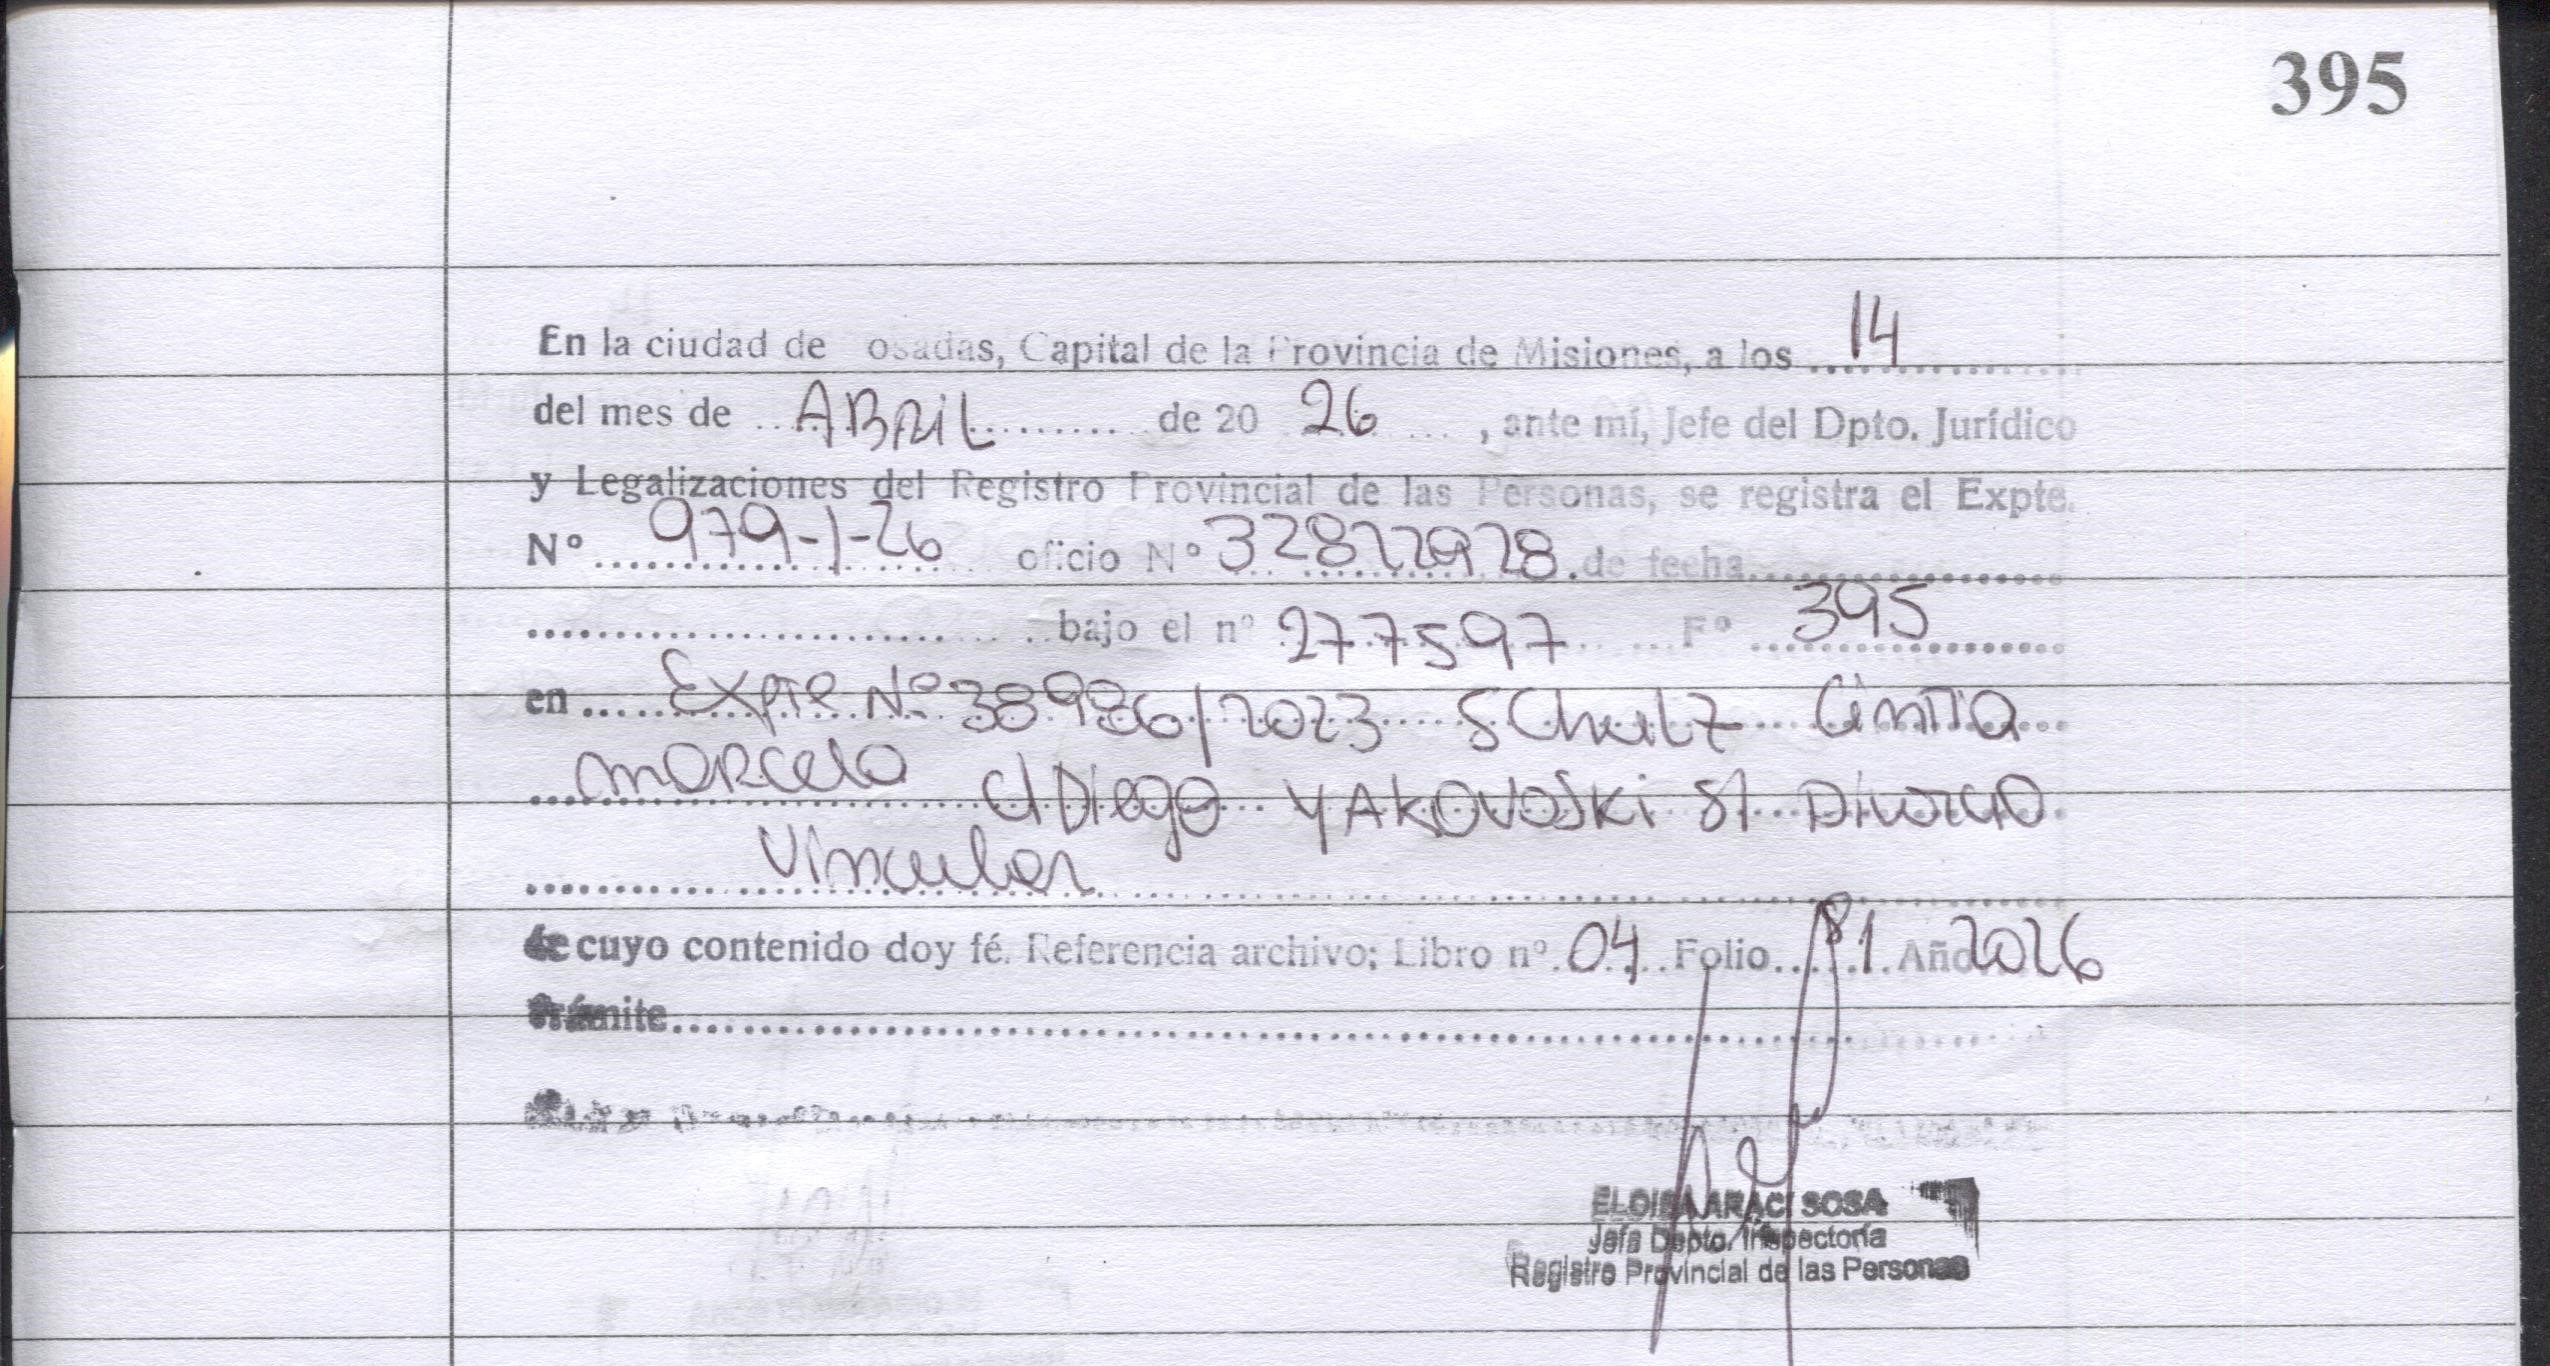 395
En la ciudad de osadas, Capital de la Provincia de Misiones, a los 14
del mes de ABRIL de 20 26, ante mí, Jefe del Dpto. Jurídico
y Legalizaciones del Registro Provincial de las Personas, se registra el Expte.
Nº 979-1-26 oficio Nº 32822928 de fecha
bajo el nº 277597 Fº 395
en Expte Nº 38986/2023 SChulz Cintia
marcela c/ Diego YAKOVOSKi s/ Divorcio
Vincular
de cuyo contenido doy fé. Referencia archivo; Libro nº 04 Folio 81 Año 2026
Trámite
ELOISA ARACI SOSA
Jefa Depto. Inspectoría
Registro Provincial de las Personas